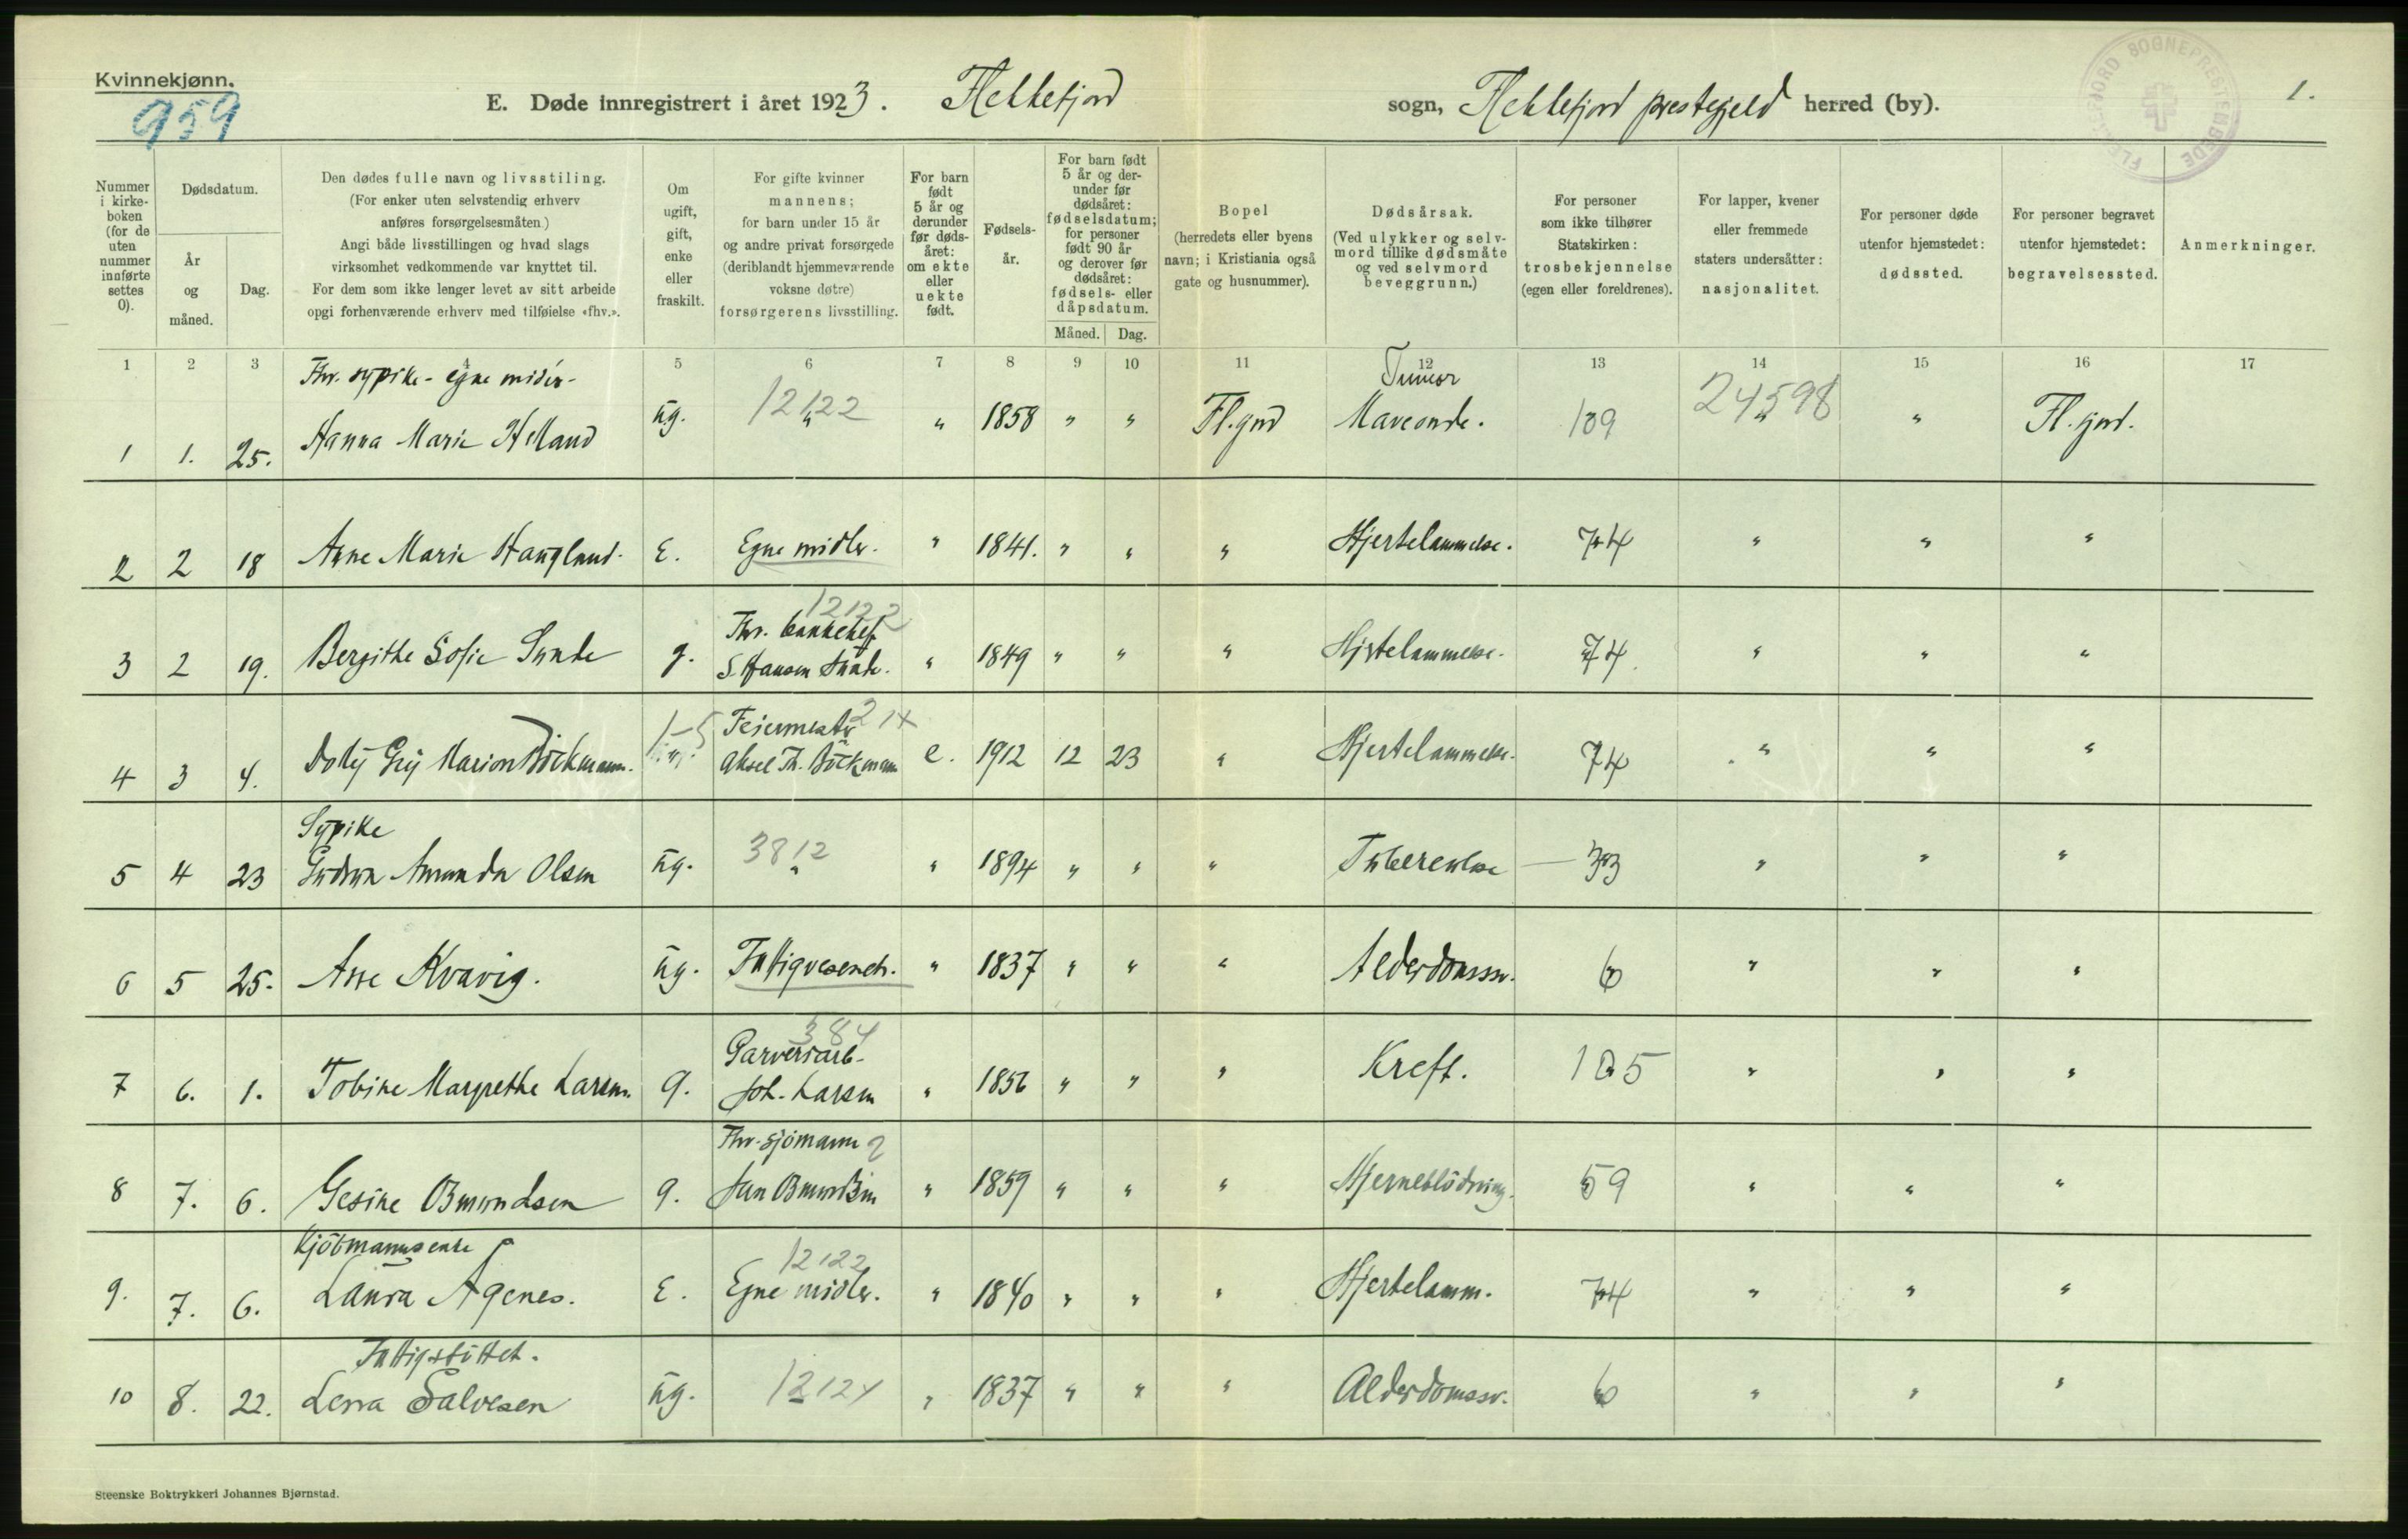 Kvinnekjønn.
959
E. Døde innregistrert i året 1923. Flekkefjord sogn, Flekkefjord prestegjeld herred (by).
1.
FLEKKEFJORD SOGNEPRESTEMBEDE
Nummer i kirkeboken (for de uten nummer innførte settes 0).
Dødsdatum.
År og måned.
Dag.
Den dødes fulle navn og livsstiling.
(For enker uten selvstendig erhverv
anføres forsørgelsesmåten.)
Angi både livsstillingen og hvad slags
virksomhet vedkommende var knyttet til.
For dem som ikke lenger levet av sitt arbeide
opgi forhenværende erhverv med tilføielse «fhv.».
Om ugift, gift, enke eller fraskilt.
For gifte kvinner
mannens;
for barn under 15 år
og andre privat forsørgede
(deriblandt hjemmeværende
voksne døtre)
forsørgerens livsstilling.
For barn født 5 år og derunder før dødsåret: om ekte eller uekte født.
Fødselsår.
For barn født 5 år og derunder før dødsåret: fødselsdatum; for personer født 90 år og derover før dødsåret: fødsels- eller dåpsdatum.
Måned. Dag.
Bopel
(herredets eller byens
navn; i Kristiania også
gate og husnummer).
Dødsårsak.
(Ved ulykker og selvmord tillike dødsmåte
og ved selvmord
beveggrunn.)
For personer
som ikke tilhører
Statskirken:
trosbekjennelse
(egen eller foreldrenes).
For lapper, kvener
eller fremmede
staters undersåtter:
nasjonalitet.
For personer døde
utenfor hjemstedet:
dødssted.
For personer begravet
utenfor hjemstedet:
begravelsessted.
Anmerkninger.
1 2 3 4 5 6 7 8 9 10 11 12 13 14 15 16 17
Fhv. sypike - egne midler - Tumor
1 1. 25. Hanna Marie Helland ug. 12122 " 1858 " " Fl.fjord Maveonde. 109 24598 " Fl.fjord.
2 2 18 Anne Marie Haugland. E. Egne midler. " 1841. " " " Hjertelammelse. 74 " " "
12122
Fhv. bankchef
3 2 19. Bergithe Sofie Sunde g. S. Hansen Sunde. " 1849 " " " Hjertelammelse. 74 " " "
Feiermester 214
4 3 4. Dolly Grij Marion Böckmann. 1-5 Aksel Th. Böckmann e. 1912 12 23 " Hjertelammelse. 74 " " "
Sypike
5 4 23 Gudrun Amanda Olsen ug. 3812 " 1894 " " " Tuberculose 33 " " "
6 5 25. Asse Kvavig. ug. Fattigvesenet. " 1837 " " " Alderdomssv. 6 " " "
384
Garveriarb.
7 6. 1. Tobine Margrethe Larsen. g. Joh. Larsen " 1856 " " " Kreft. 105 " " "
Fhv. sjömann 2
8 7. 6. Gesine Osmundsen g. Jan Osmundsen " 1859 " " " Hjerneblödning. 59 " " "
Kjöbmannsenke 12122
9. 7. 6. Laura Agenes. E. Egne midler. " 1840 " " " Hjertelamm. 74 " " "
Fattigstöttet.
10 8. 22. Lena Salvesen ug. 12124 " 1837 " " " Alderdomssv. 6 " " "
Steenske Boktrykkeri Johannes Bjørnstad.